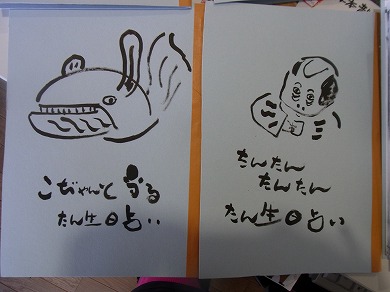 こぢゃんと当る
たん生日占い
たんたん
たんたん
たん生日占い